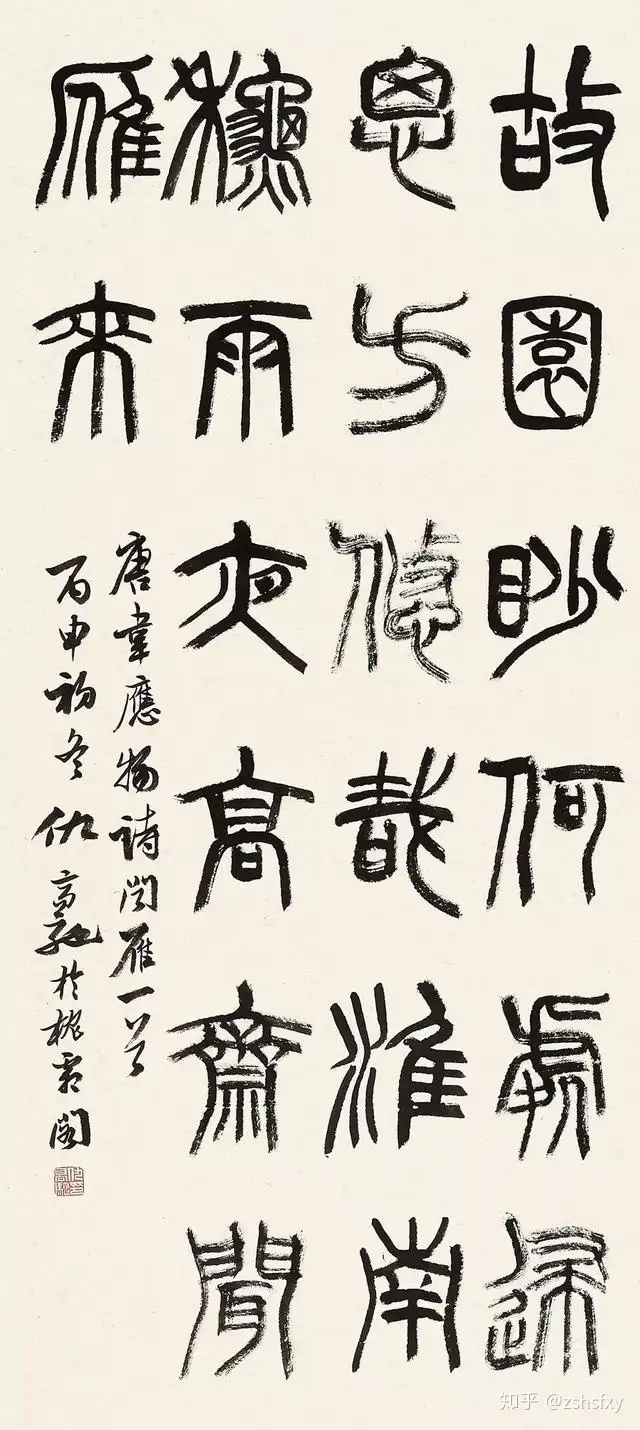 故園眇何處歸
思方悠哉淮南
龝雨夜高齋聞
雁来
唐韋應物詩聞雁一首
丙申初冬仇高馳於閣
知乎 @zshsfxy